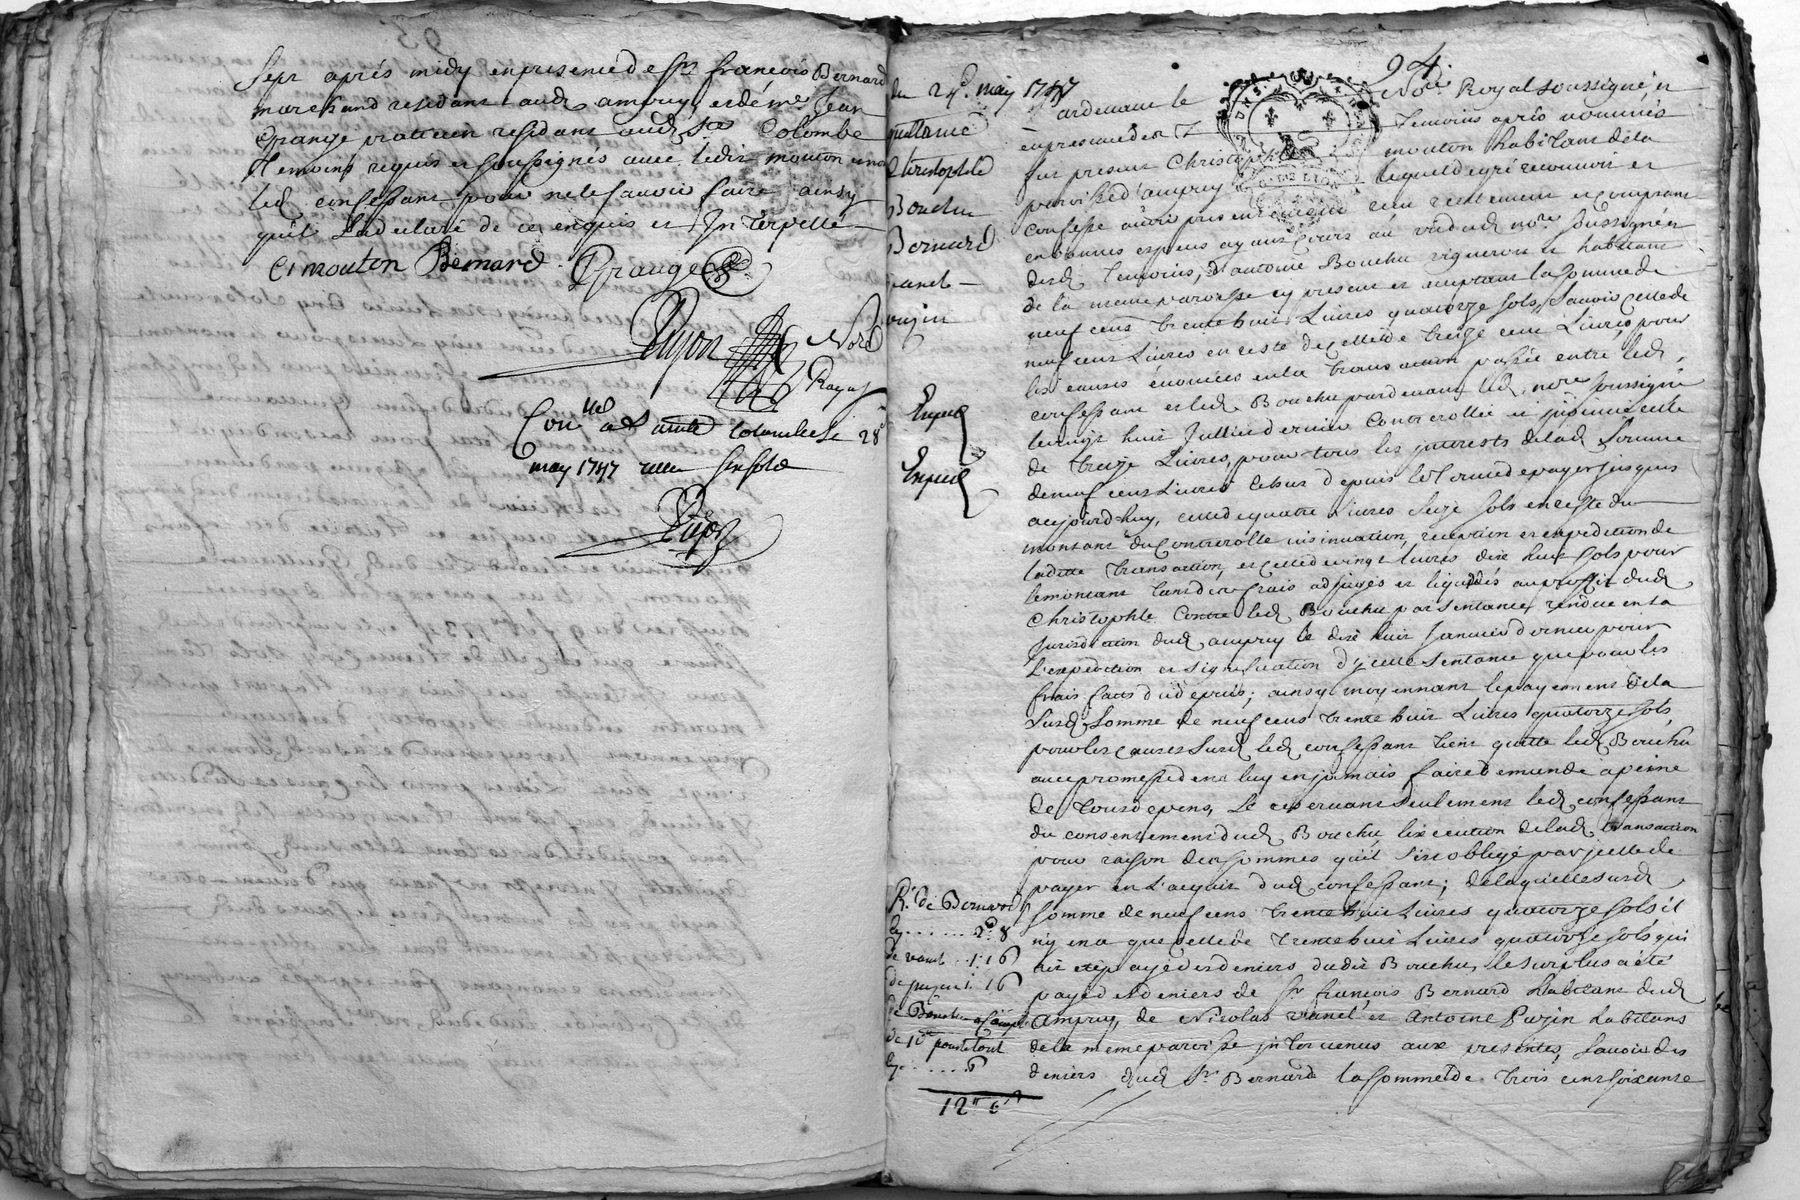 Sept après midy en presence de sr. françois Bernard
marchand residant aud. ampuy et de me. Jean
Grange praticien residant aud. Ste Colombe
temoins requis et soussignés avec ledit mouton et non
led. confessant pour ne le sçavoir faire ainsy
qu'il l'a declaré de ce enquis et Interpellé
C mouton Bernard Grange
Dujon Nore
Royal
Conllé a Ste Colombe le 28
may 1747 receu six sols
Dujon
94.
du 24e. may 1747
quittance
Christophle
Bouchu
Bernard
vanel
pujin
Expedié
Expedié
Pardevant le Nore. Royal soussigné, et
en presence des temoins après nommés
fut present Christophle mouton habitant de la
paroisse d'ampuy lequel de gré reconnoit et
confesse avoir presentement receu reellement et comptant
en bonnes especes ayant cours au vu dud. nore. soussigné et
desd. temoins, d'antoine Bouchu vigneron et habitant
de la meme paroisse cy present et acceptant la somme de
neuf cens trente huit Livres quatorze sols, sçavoir celle de
neuf cens Livres en reste de celle de treize cens Livres, pour
les causes énoncées en la transaction passée entre led.
confessant et led. Bouchu pardevant led. nore soussigné
le vingt huit Juillet dernier Controllée et insinuée celle
de treize Livres, pour tous les interests de lad. somme
de neuf cens Livres echus depuis le terme de payer jusques
aujourd'huy, celle de quatre Livres seize sols en reste du
montant du controlle insinuation, reception et expedition de
laditte transaction, et celle de vingt livres dix huit sols pour
le montant tant des frais adjugés et liquidés au proffit dud.
Christophle contre led. Bouchu par sentance rendue en la
Jurisdiction dud. ampuy le dix huit Janvier dernier pour
l'expedition et signification d'ycelle sentance que pour les
frais faits du depuis; ainsy moyennant le payement de la
susd. somme de neuf cens trente huit Livres quatorze sols,
pour les causes susd. led. confessant tient quitte led. Bouchu
avec promesse de ne luy en jamais faire demande a peine
de tous depens, se reservant seulement led. confessant
du consentement dud. Bouchu, l'execution de lad. transaction
pour raison des sommes qu'il s'est obligé par jcelle de
payer en l'acquit dud. confessant; de laquelle susd.
somme de neuf cens trente huit Livres quatorze sols il
n'y en a que celle de trente huit Livres quatorze sols qui
ait eté payé des deniers dudit Bouchu, le surplus a été
payé des deniers de sr. françois Bernard habitant dud.
Ampuy, de Nicolas vanel et Antoine Pujin habitans
de la meme paroisse intervenus aux presentes, sçavoir des
deniers dud. sr. Bernard la somme de trois cens soixante
R. de Bernard
cy ...... 2. 8
de vanel .. 1: 16
de pujin 1: 16
de Bouchu a Compte
de pour le tout
cy ...... 6
12 6